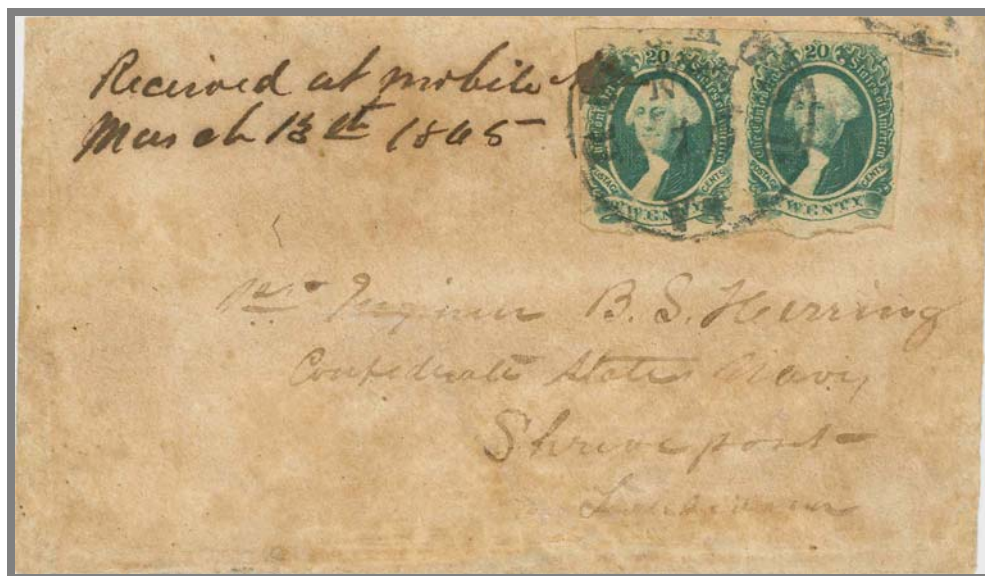 Received at mobile
March 13th 1865
20
The Confederate States of America
POSTAGE
CENTS
TWENTY
20
The Confederate States of America
POSTAGE
CENTS
TWENTY
Engineer B. S. Herring
Confederate States Navy
Shreveport
Louisiana